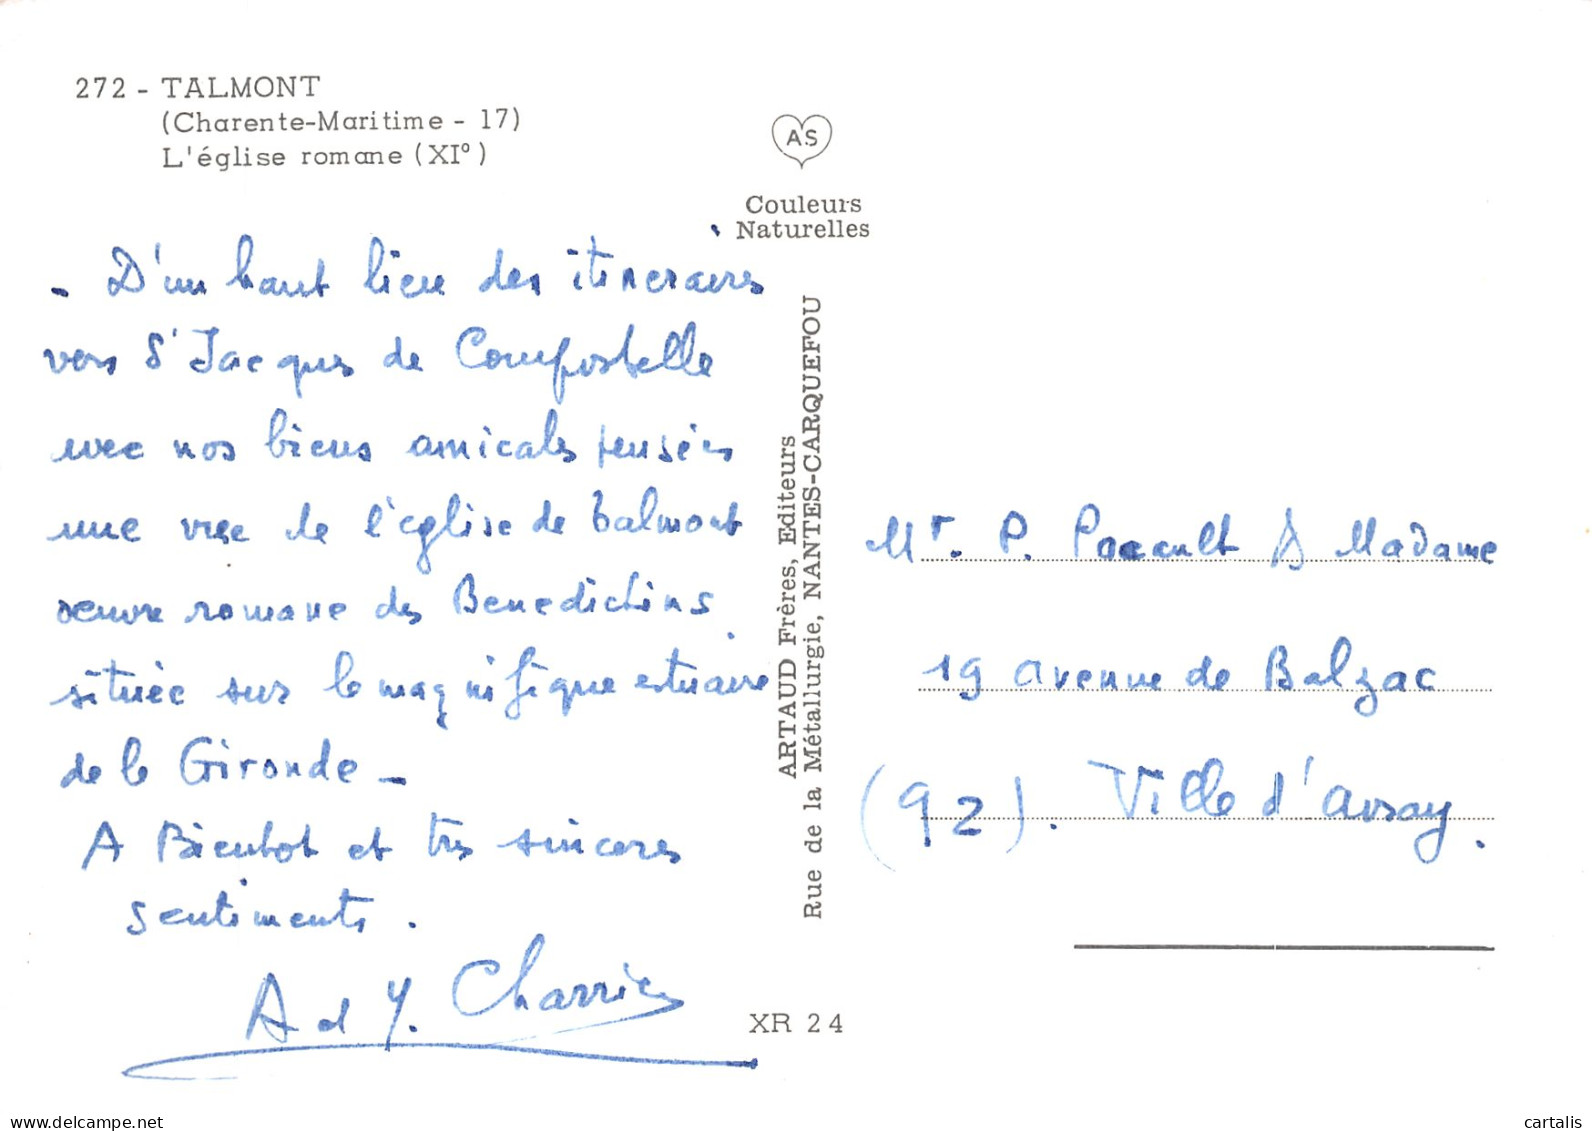 272 - TALMONT
(Charente-Maritime - 17)
L'église romane (XI°)
AS
Couleurs
Naturelles
- D'un haut lieu des itineraires
vers St Jacques de Compostelle
avec nos biens amicales pensées
une vue de l'église de Talmont
oeuvre romane des Benedictins
située sur le magnifique estuaire
de la Gironde -
A Bientot et très sinceres
sentiments.
A et Y. Charrier
ARTAUD Frères, Editeurs
Rue de la Métallurgie, NANTES-CARQUEFOU
Mr. P. & Madame
19 avenue de Balzac
(92). Ville d'avray.
XR 24
www.delcampe.net
cartalis